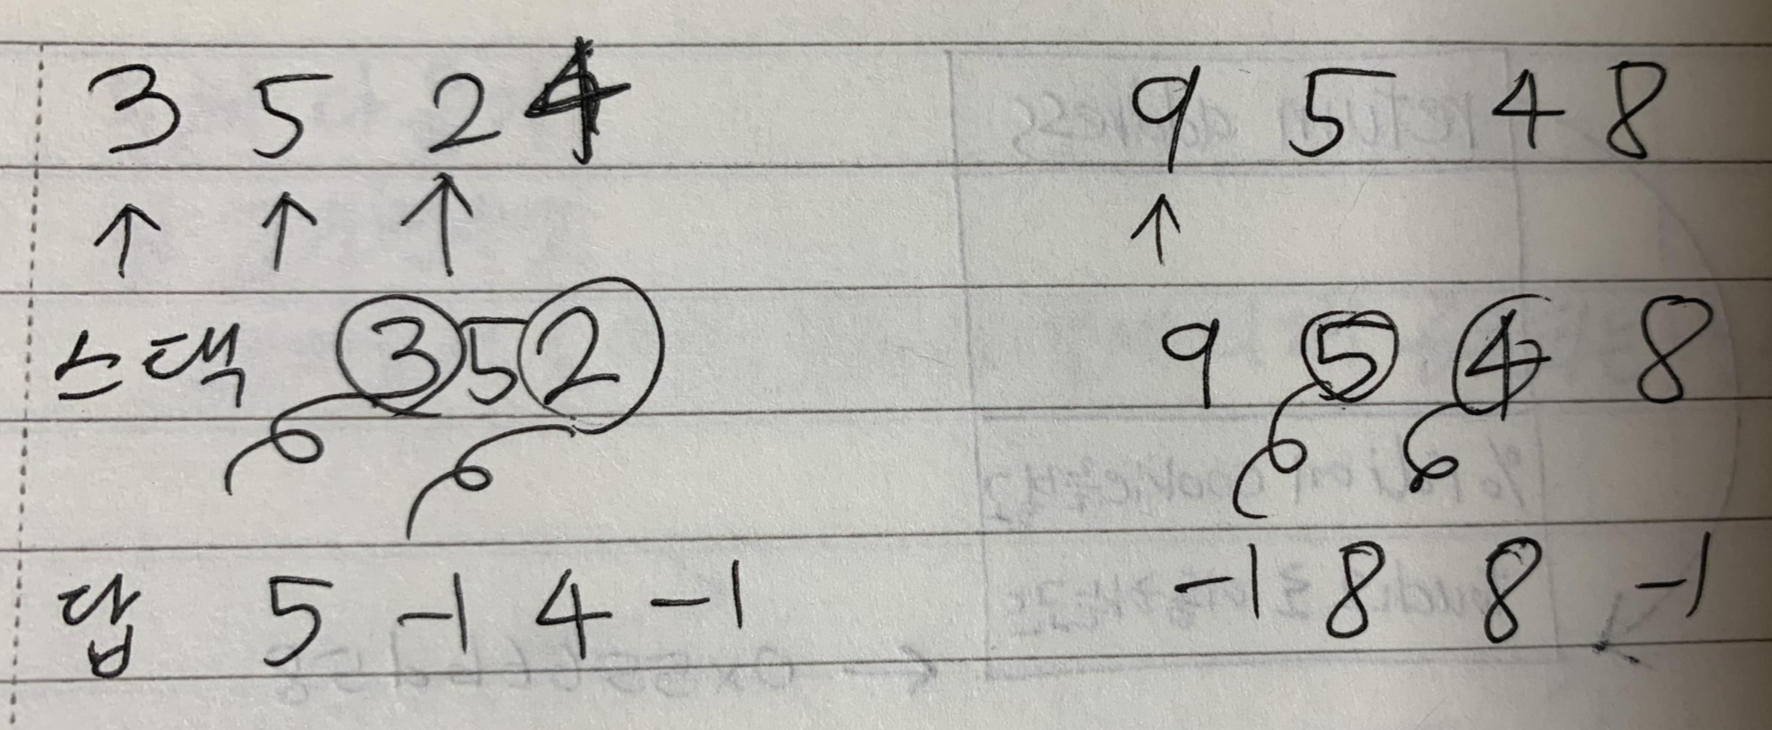 3 5 2 4 9 5 4 8
↑ ↑ ↑ ↑
스택 3 5 2 9 5 4 8
답 5 -1 4 -1 -1 8 8 -1